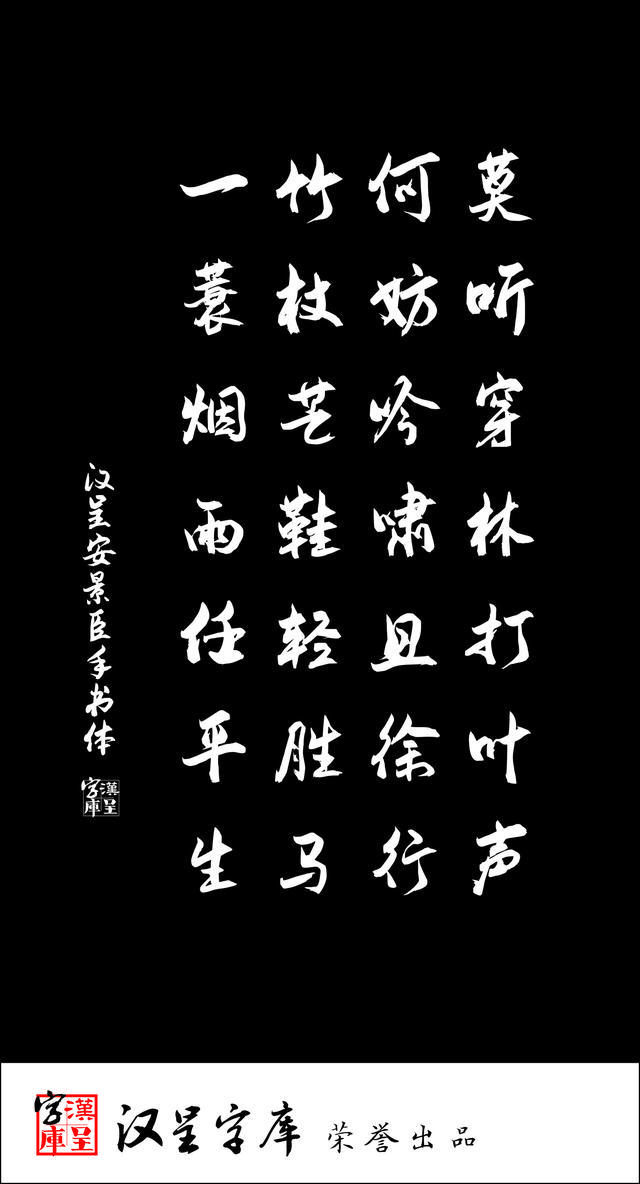 莫听穿林打叶声
何妨吟啸且徐行
竹杖芒鞋轻胜马
一蓑烟雨任平生
汉呈安景臣手书体
漢呈字庫
漢呈字庫
汉呈字库 荣誉出品